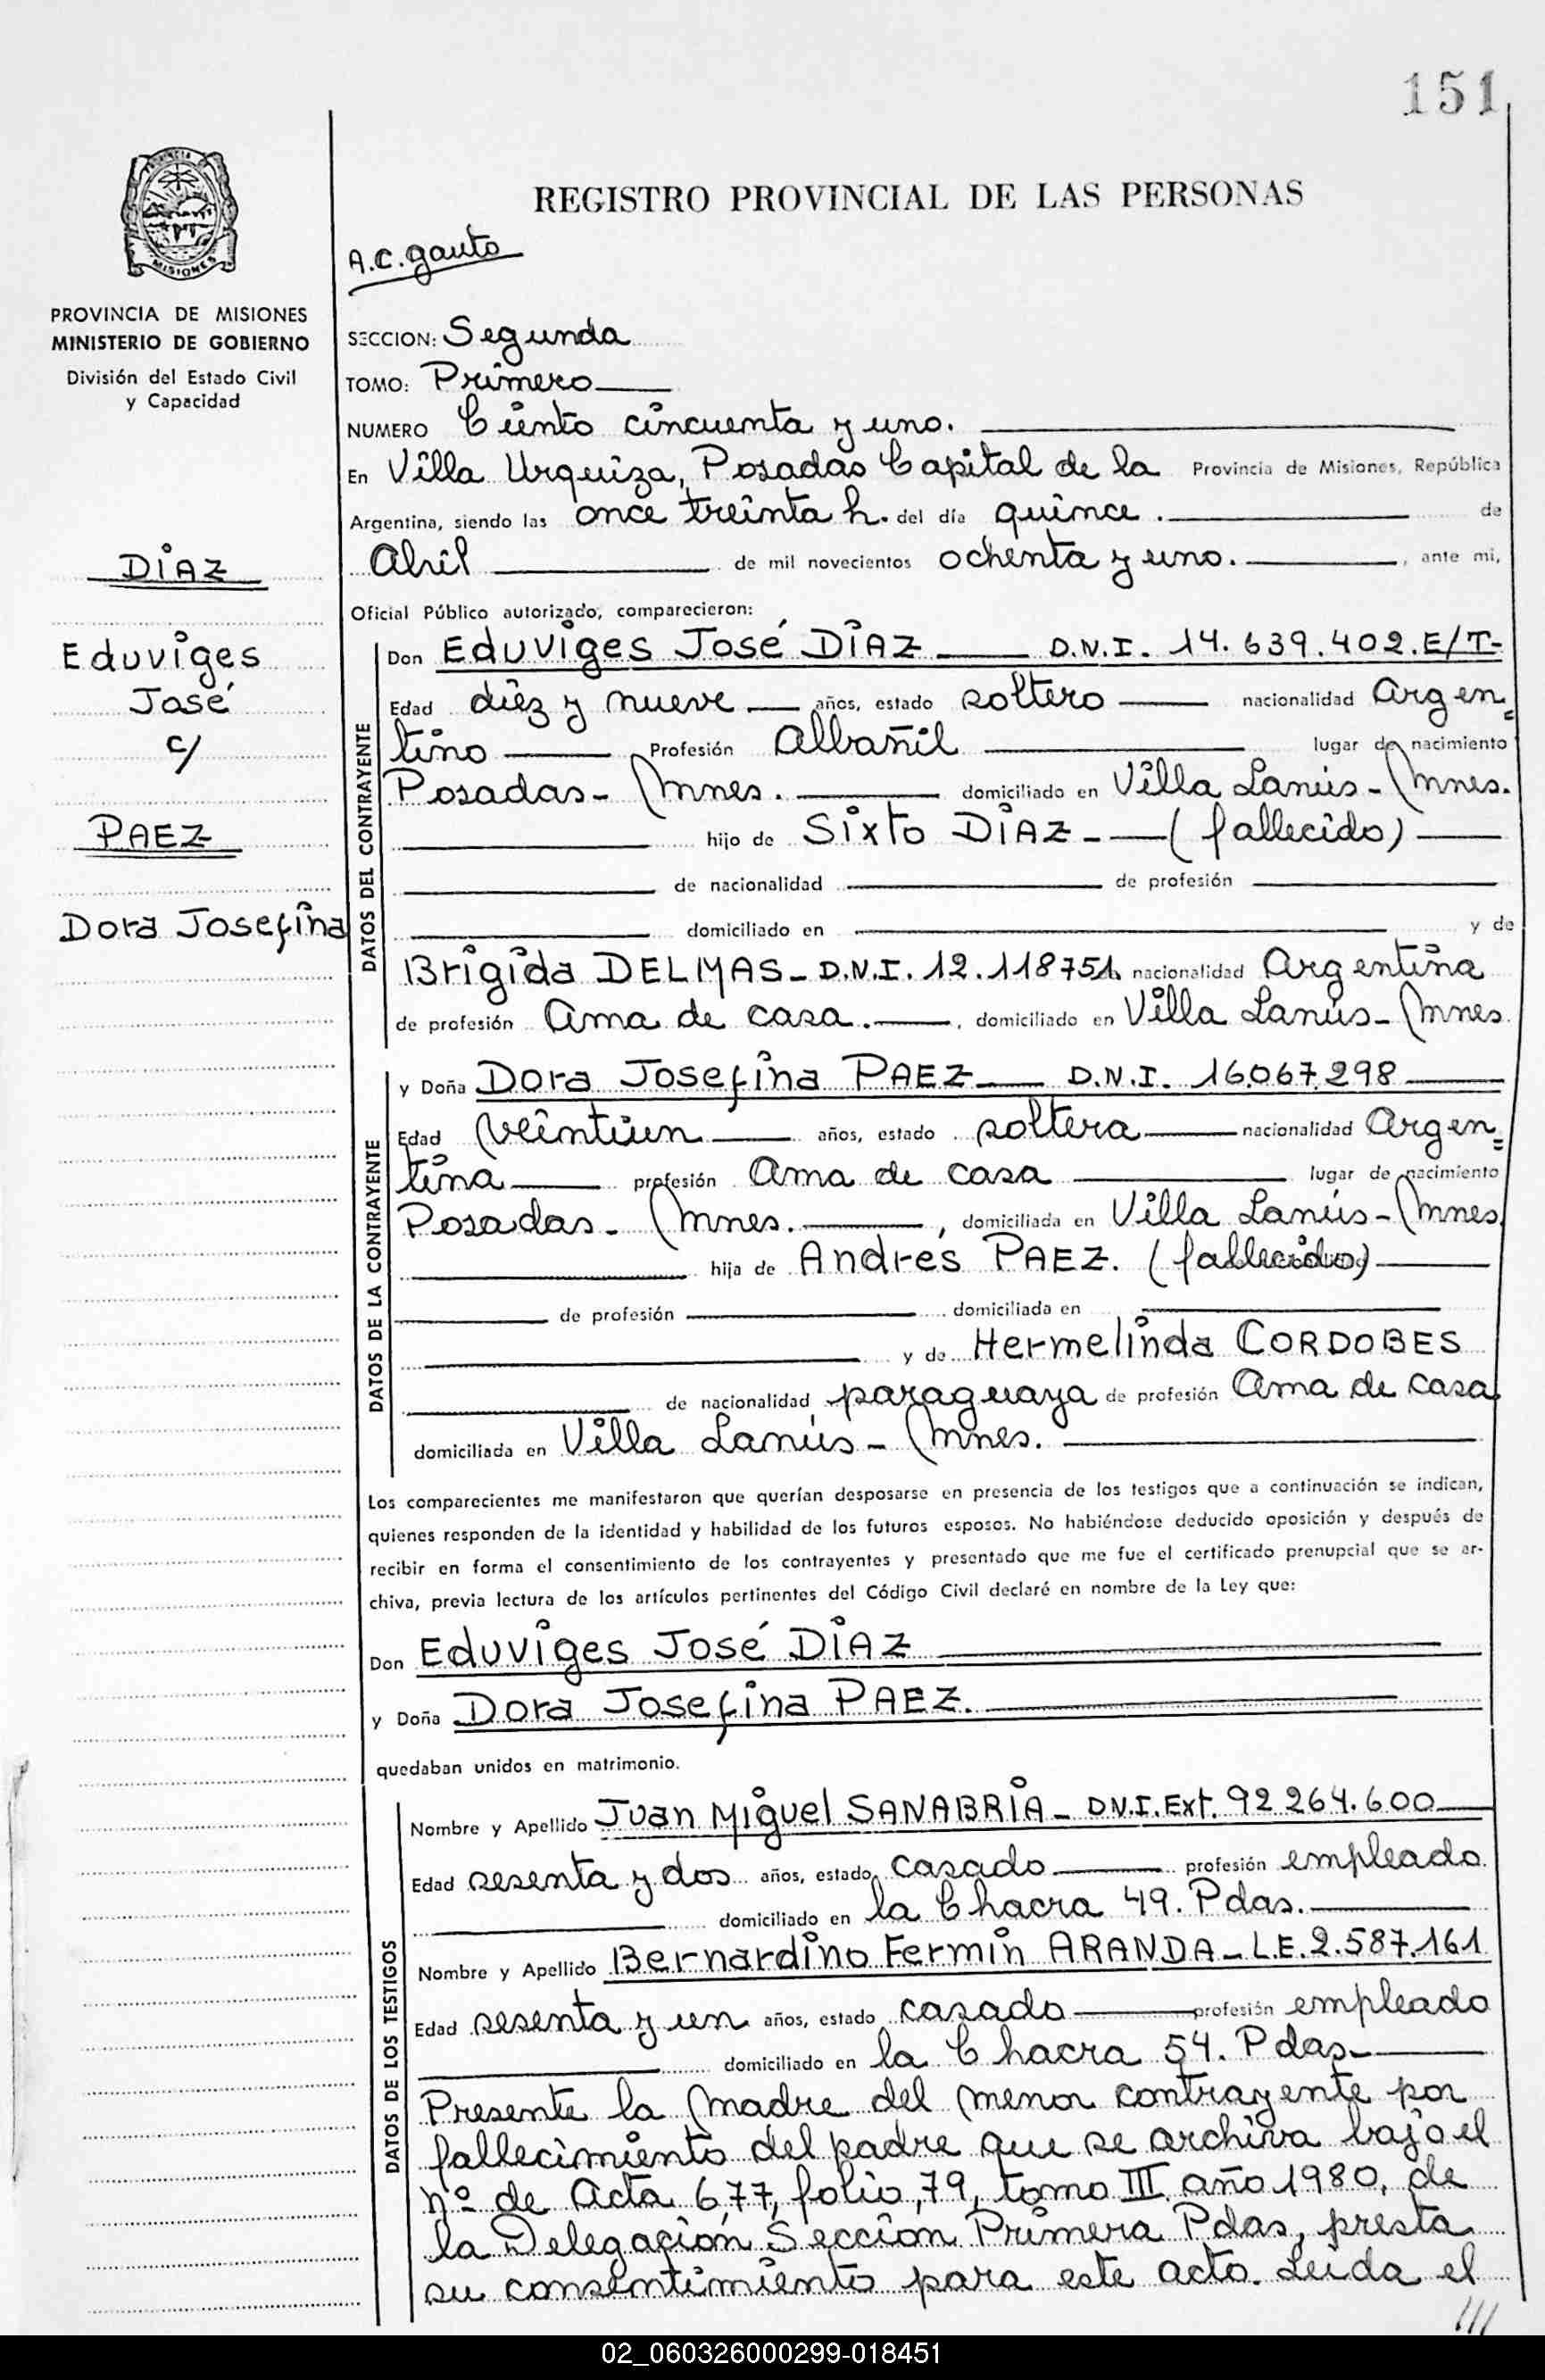 151
PROVINCIA
MISIONES
PROVINCIA DE MISIONES
MINISTERIO DE GOBIERNO
División del Estado Civil
y Capacidad
DiAZ
Eduviges
José
c/
PAEZ
Dora Josefina
REGISTRO PROVINCIAL DE LAS PERSONAS
A.C. gauto
SECCION: Segunda
TOMO: Primero
NUMERO Ciento cincuenta y uno.
En Villa Urquiza, Posadas Capital de la Provincia de Misiones, República
Argentina, siendo las once treinta h. del día quince. de
Abril de mil novecientos ochenta y uno. , ante mi,
Oficial Público autorizado, comparecieron:
DATOS DEL CONTRAYENTE
Don Eduviges José DiAZ D.N.I. 14.639.402.E/T-
Edad diez y nueve años, estado soltero nacionalidad Argen=
tino Profesión Albañil lugar de nacimiento
Posadas- Mnes. domiciliado en Villa Lanús- Mnes.
hijo de Sixto DiAZ- (fallecido)
de nacionalidad de profesión
domiciliado en y de
Brigida DELMAS- D.N.I. 12.118751. nacionalidad Argentina
de profesión Ama de casa. , domiciliado en Villa Lanús- Mnes.
DATOS DE LA CONTRAYENTE
y Doña Dora Josefina PAEZ D.N.I. 16.067.298
Edad veintiun años, estado soltera nacionalidad Argen=
tina profesión Ama de casa lugar de nacimiento
Posadas- Mnes. , domiciliada en Villa Lanús- Mnes
hija de Andrés PAEZ. (fallecido)
de profesión domiciliada en
y de Hermelinda CORDOBES
de nacionalidad paraguaya de profesión Ama de casa
domiciliada en Villa Lanús- Mnes.
Los comparecientes me manifestaron que querían desposarse en presencia de los testigos que a continuación se indican,
quienes responden de la identidad y habilidad de los futuros esposos. No habiéndose deducido oposición y después de
recibir en forma el consentimiento de los contrayentes y presentado que me fue el certificado prenupcial que se ar-
chiva, previa lectura de los artículos pertinentes del Código Civil declaré en nombre de la Ley que:
Don Eduviges José DiAZ
y Doña Dora Josefina PAEZ.
quedaban unidos en matrimonio.
DATOS DE LOS TESTIGOS
Nombre y Apellido Juan Miguel SANABRiA- D.N.I. Ext. 92.264.600
Edad sesenta y dos años, estado casado profesión empleado
domiciliado en la Chacra 49. Pdas.
Nombre y Apellido Bernardino Fermín ARANDA- L.E. 2.587.161
Edad sesenta y un años, estado casado profesión empleado
domiciliado en la Chacra 54. Pdas-
Presente la madre del menor contrayente por
fallecimiento del padre que se archiva bajo el
nº de Acta 677, folio, 79, tomo III año 1980, de
la Delegación Sección Primera Pdas, presta
su consentimiento para este acto. Leida el
///
02_060326000299-018451